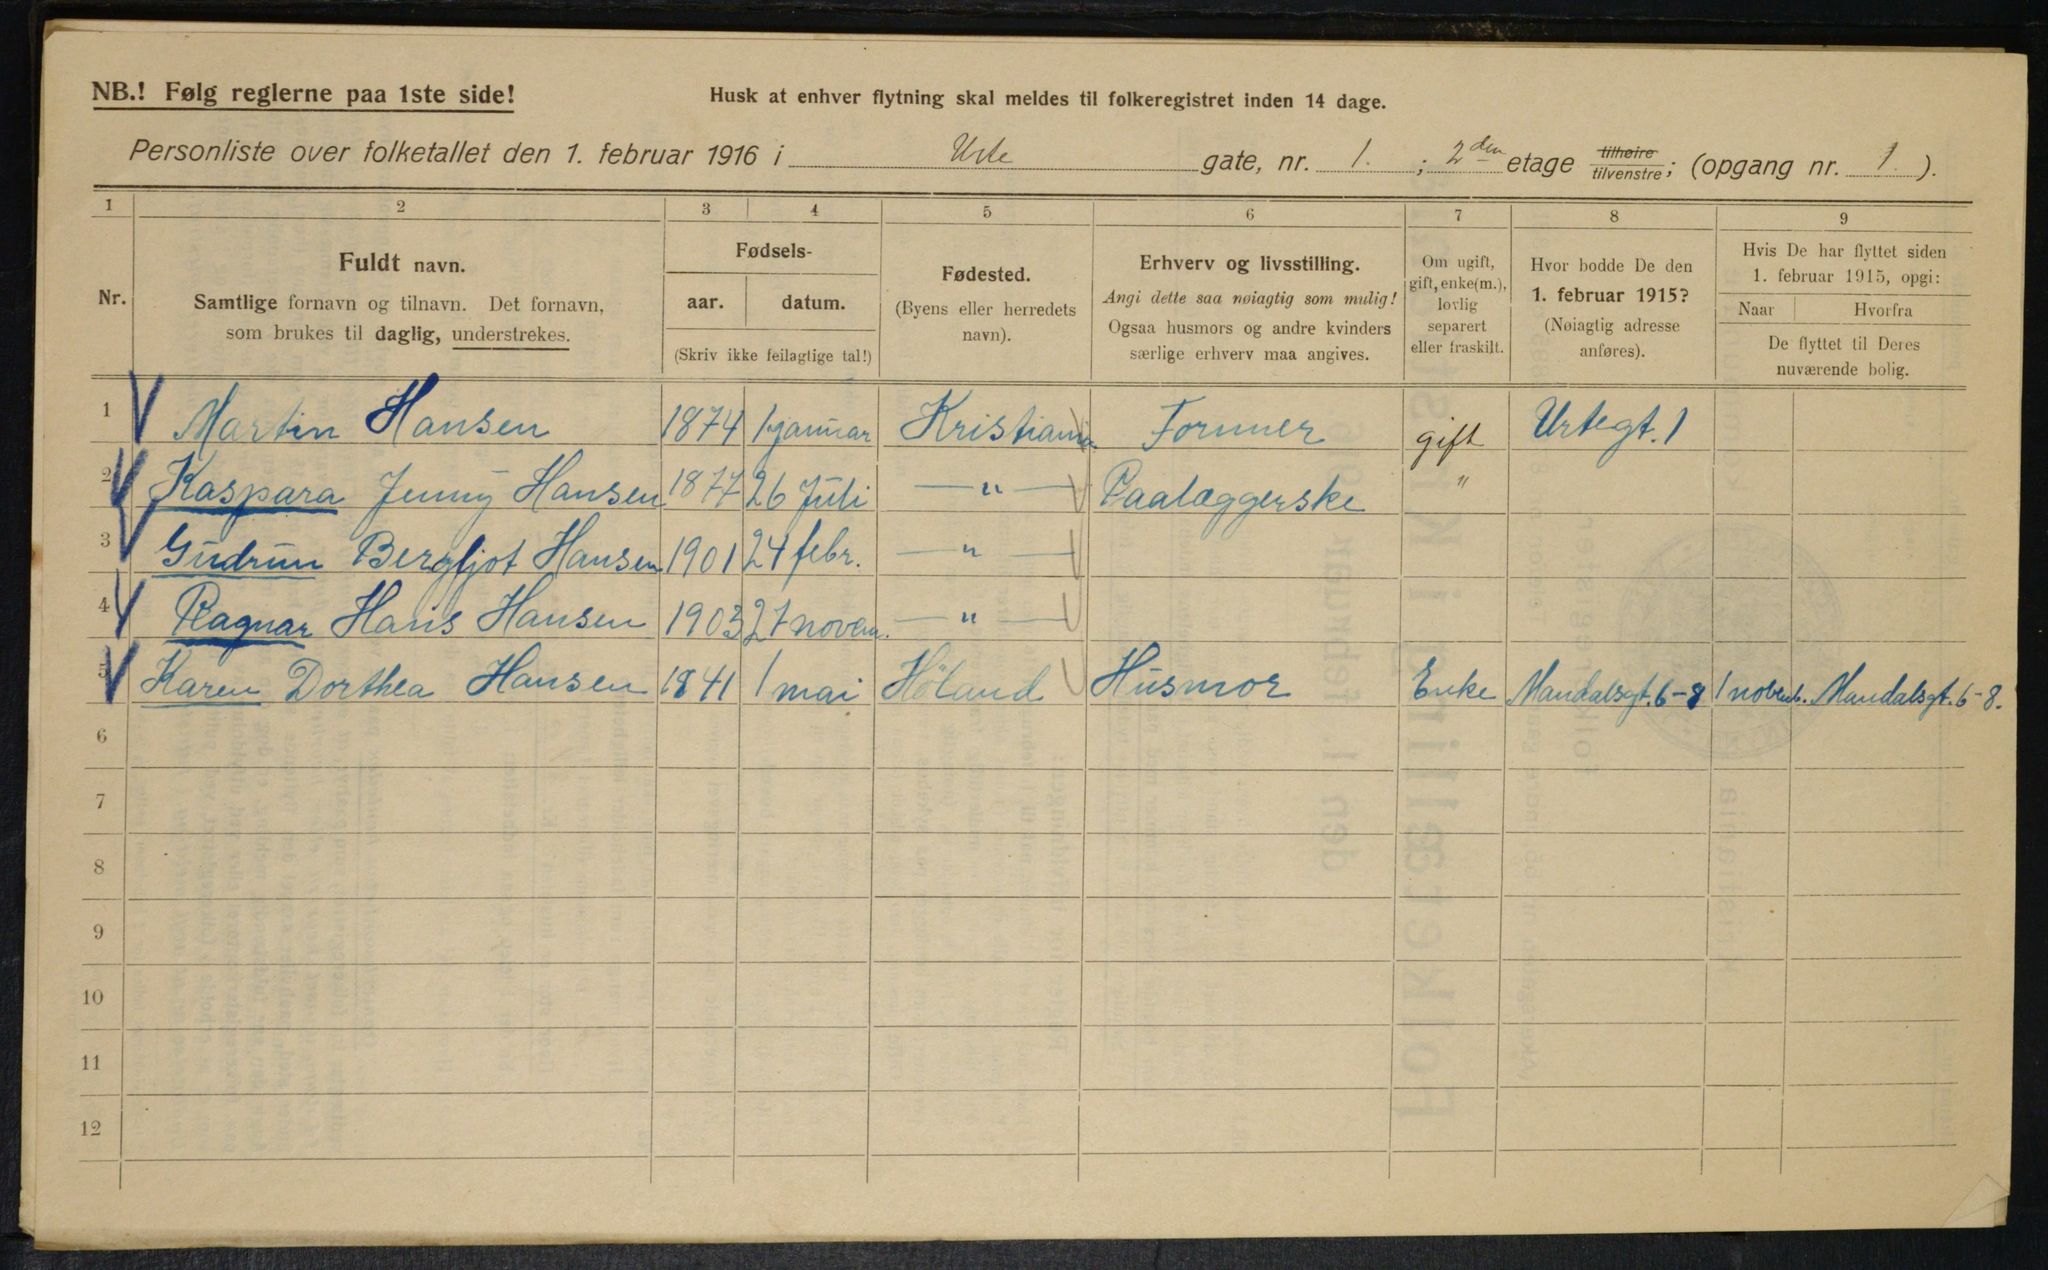 NB.! Følg reglerne paa 1ste side!
Husk at enhver flytning skal meldes til folkeregistret inden 14 dage.
Personliste over folketallet den 1. februar 1916 i Urte gate, nr. 1. ; 2den etage tilhøire/tilvenstre; (opgang nr. 1.).
1 2 3 4 5 6 7 8 9
Nr.
Fuldt navn.
Samtlige fornavn og tilnavn. Det fornavn,
som brukes til daglig, understrekes.
Fødsels-
aar. datum.
(Skriv ikke feilagtige tal!)
Fødested.
(Byens eller herredets
navn).
Erhverv og livsstilling.
Angi dette saa nøiagtig som mulig!
Ogsaa husmors og andre kvinders
særlige erhverv maa angives.
Om ugift,
gift, enke(m.),
lovlig
separert
eller fraskilt.
Hvor bodde De den
1. februar 1915?
(Nøiagtig adresse
anføres).
Hvis De har flyttet siden
1. februar 1915, opgi:
Naar Hvorfra
De flyttet til Deres
nuværende bolig.
1 Martin Hansen 1874 1 januar Kristiania Formner gift Urtegt. 1
2 Kaspara Jenny Hansen 1877 26 Juli — " — Paalæggerske "
3 Gudrun Bergljot Hansen 1901 24 febr. — " —
4 Ragnar Hans Hansen 1903 27 novem. — " —
5 Karen Dorthea Hansen 1841 1 mai Höland Husmor Enke Mandalsgt. 6-8 1 novemb. Mandalsgt. 6-8.
6
7
8
9
10
11
12